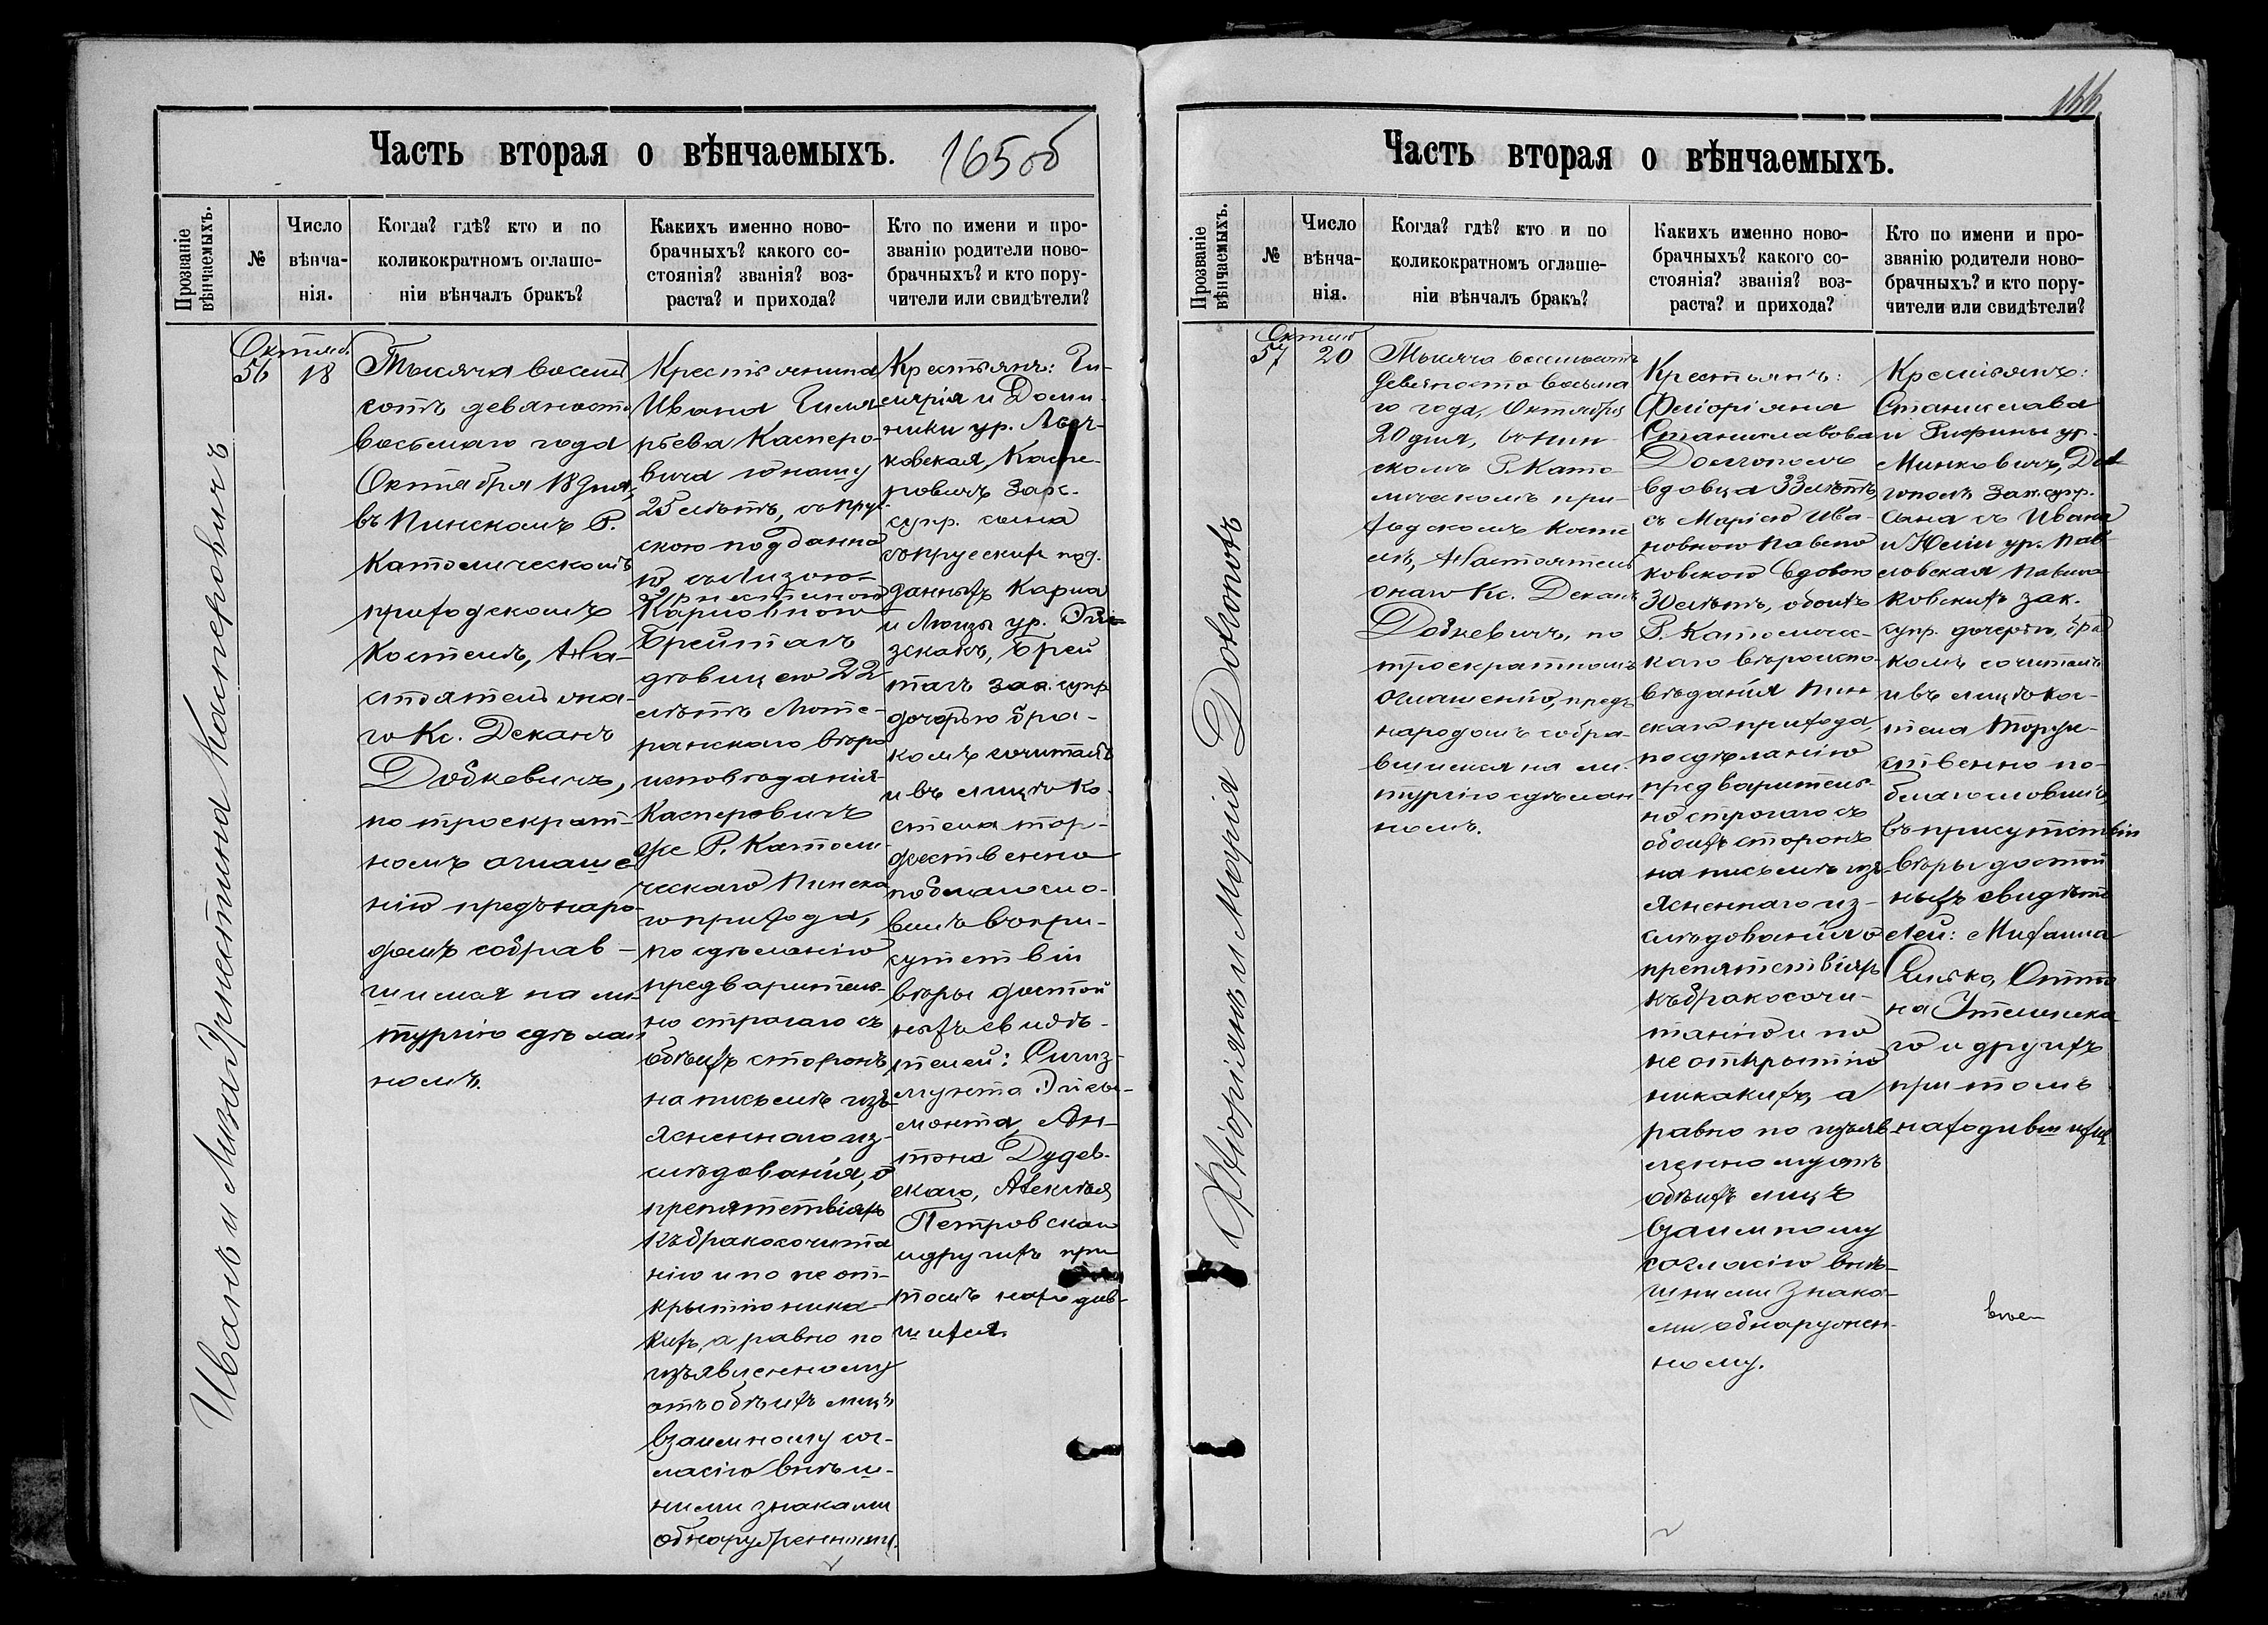 Часть вторая о вѣнчаемыхъ.
165об
Прозваніе вѣнчаемыхъ.
№
Число вѣнча-
нія.
Когда? гдѣ? кто и по
коликократномъ оглаше-
ніи вѣнчалъ бракъ?
Какихъ именно ново-
брачныхъ? какого со-
стоянія? званія? воз-
раста? и прихода?
Кто по имени и про-
званію родители ново-
брачныхъ? и кто пору-
чители или свидѣтели?
Иванъ и Лиза Эрнестина Касперовичъ
Октяб.
56
18
Тысяча восемь
сотъ девяносто
восьмаго года
Октября 18 дня,
въ Пинскомъ Р.
Католическомъ
приходскомъ
Костелѣ, На-
стоятель она-
го Кс. Деканъ
Добкевичъ,
по троекрат-
номъ оглаше
нію предъ наро-
домъ собрав-
шимся на ли-
тургію сдѣлан
номъ.
Крестьянина
Ивана Гиля-
рьева Касперо-
вича юношу
25 лѣтъ, съ пру-
скою поддано
ю съ Лизою-
Эрнестиною
Карловною
Брейтагъ
дѣвицею 22
лѣтъ Люте-
ранскаго вѣро
исповѣданія
Касперовичъ
же Р. Католи-
ческаго Пинска
го прихода,
по сдѣланію
предваритель-
но строгаго съ
обѣихъ сторонъ
на письмѣ изъ-
ясненнаго из-
слѣдованія, о
препятствіяхъ
къ бракосочета
нію и по не от-
крытію ника-
кихъ, а равно по
изъявленному
отъ обѣихъ лицъ
взаимному сог-
ласію внѣш-
ними знаками
обнаруженному.
Крестьянъ: Ги-
лярія и Доми-
ники ур.
ковская, Каспе-
ровичъ зак.
супр. сына
съ прусскихъ под-
данныхъ Карла
и Люизы ур.
Брей
тагъ зак. супр.
дочерью бра-
комъ сочеталъ
и въ лицѣ ко-
стела тор-
жественно
поблагосло-
вилъ въ при-
сутствіи
вѣры достой
ныхъ свидѣ-
телей: Сигиз-
мунта
монта, Ан-
тона Дудев-
скаго, Алексѣя
Петровскаго
и другихъ при
томъ находив-
шихся.
166
Часть вторая о вѣнчаемыхъ.
Прозваніе вѣнчаемыхъ.
№
Число вѣнча-
нія.
Когда? гдѣ? кто и по
коликократномъ оглаше-
ніи вѣнчалъ бракъ?
Какихъ именно ново-
брачныхъ? какого со-
стоянія? званія? воз-
раста? и прихода?
Кто по имени и про-
званію родители ново-
брачныхъ? и кто пору-
чители или свидѣтели?
Фліоріянъ и Марія
Октяб
57
20
Тысяча восемьсотъ
девяносто восьма
го года, Октября
20 дня, въ Пин-
скомъ Р. Като-
лическомъ при-
ходскомъ Косте
лѣ, Настоятель
онаго Кс. Деканъ
Добкевичъ, по
троекратномъ
оглашенію, предъ
народомъ собра-
вшимся на ли-
тургію сдѣлан
номъ.
Крестьянъ:
Фліоріяна
Станиславова
вдовца 33 лѣтъ,
съ Маріею Ива-
новною Павлю
ковскою вдовою
30 лѣтъ, обоихъ
Р. Католичес-
каго вѣроиспо-
вѣданія Пин
скаго прихода,
по сдѣланію
предваритель-
но строгаго съ
обоихъ сторонъ
на письмѣ изъ-
ясненнаго из-
слѣдованія о
препятствіяхъ
къ бракосоче-
танію и по
не открытію
никакихъ, а
равно по изъяв
ленному отъ
обѣихъ лицъ
взаимному
согласію внѣ-
шними знака-
ми обнаружен-
ному.
Крестьянъ:
Станислава
и ур.
Минковичъ,
зак. супр.
сына съ Ивана
и Юліи ур.
ковскихъ зак.
супр. дочерью, бра
комъ сочеталъ
и въ лицѣ ко-
стела торже-
ственно по-
благословилъ
въ присутствіи
вѣры достой
ныхъ свидѣте
лей: Михаила
на
го и другихъ
при томъ
находившихся